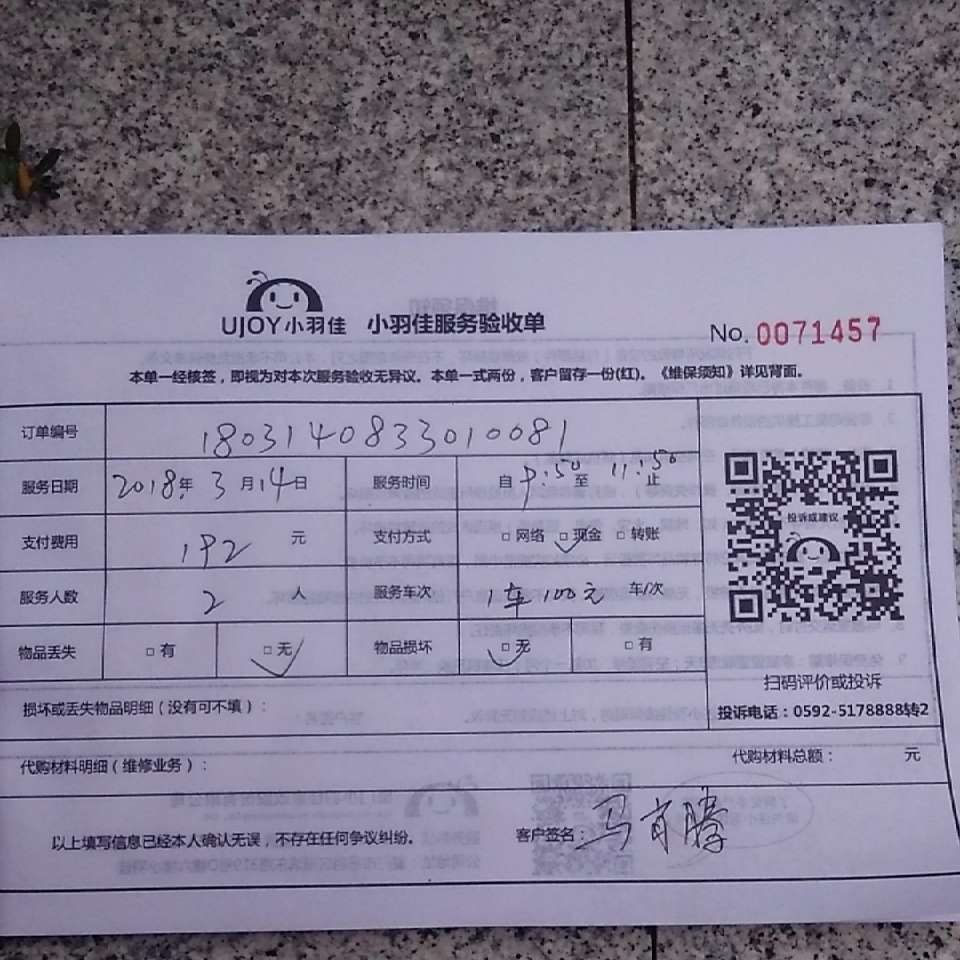 UJOY小羽佳 小羽佳服务验收单
No. 0071457
本单一经核签，即视为对本次服务验收无异议。本单一式两份，客户留存一份(红)。《维保须知》详见背面。
订单编号 1803140833010081
服务日期 2018年 3月14日 服务时间 自 9:50 至 11:50 止
支付费用 192 元 支付方式 □网络 □现金 □转账
服务人数 2 人 服务车次 1车100元 车/次
物品丢失 □有 □无 物品损坏 □无 □有
投诉或建议
扫码评价或投诉
投诉电话：0592-5178888转2
损坏或丢失物品明细（没有可不填）：
代购材料明细（维修业务）： 代购材料总额： 元
以上填写信息已经本人确认无误，不存在任何争议纠纷。 客户签名：